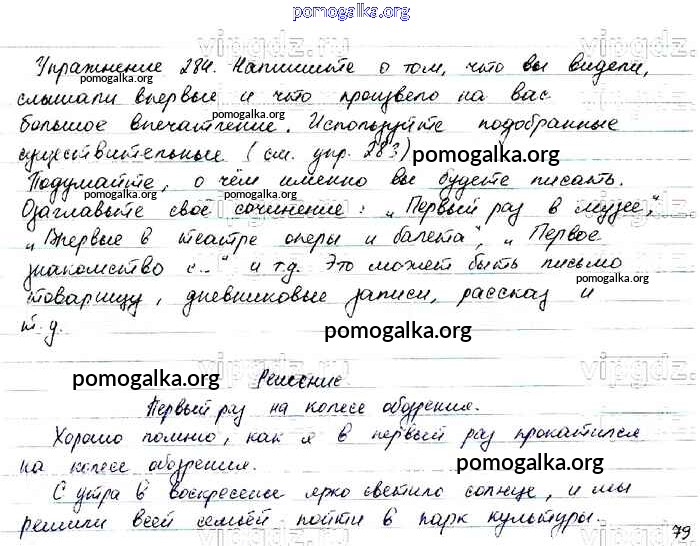 pomogalka.org
vipgdz.ru
Упражнение 284. Напишите о том, что вы видели,
pomogalka.org
слышали впервые и что произвело на вас
pomogalka.org
большое впечатление. Используйте подобранные
существительные (см. упр. 283)
pomogalka.org
Подумайте, о чём именно вы будете писать.
pomogalka.org
Озаглавьте своё сочинение: „Первый раз в музее",
„Впервые в театре оперы и балета", „Первое
знакомство с..." и т.д. Это может быть письмо
pomogalka.org
товарищу, дневниковые записи, рассказ и
т.д.
pomogalka.org
vipgdz.ru
pomogalka.org
Решение
Первый раз на колесе обозрения.
Хорошо помню, как я в первый раз прокатился
на колесе обозрения.
pomogalka.org
С утра в воскресенье ярко светило солнце, и мы
решили всей семьёй пойти в парк культуры.
79